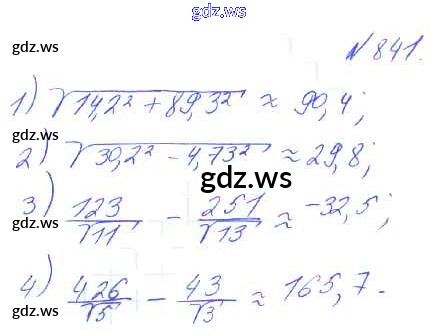 gdz.ws
gdz.ws
№ 841.
1) √14,2² + 89,3² ≈ 90,4;
gdz.ws
2) √30,2² - 4,73² ≈ 29,8;
gdz.ws
3) 123/√11 - 251/√13 ≈ -32,5;
gdz.ws
4) 426/√5 - 43/√3 ≈ 165,7.
gdz.ws